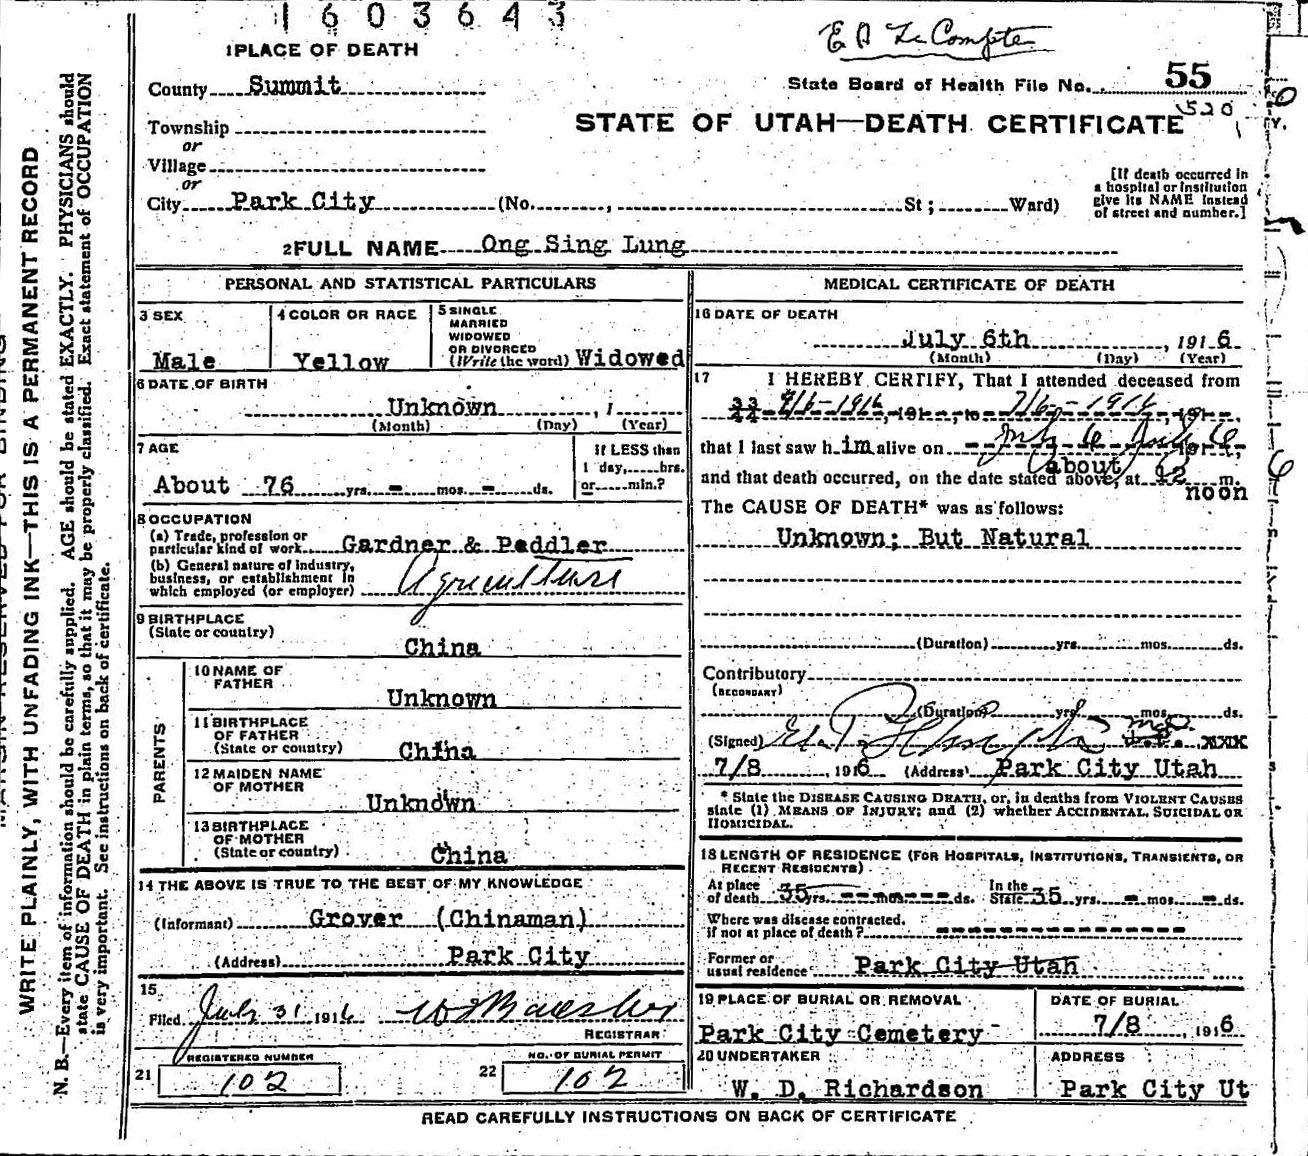 1603643
E D LeCompte
1 PLACE OF DEATH
County Summit
State Board of Health File No. 55
520
Township
or
STATE OF UTAH—DEATH CERTIFICATE
Village
or
City Park City (No. , St; Ward)
[If death occurred in
a hospital or institution
give its NAME instead
of street and number.]
2 FULL NAME Ong Sing Lung
PERSONAL AND STATISTICAL PARTICULARS
3 SEX
Male
4 COLOR OR RACE
Yellow
5 SINGLE
MARRIED
WIDOWED
OR DIVORCED
(Write the word) Widowed
6 DATE OF BIRTH
Unknown , 1
(Month) (Day) (Year)
7 AGE
About 76 yrs. - mos. - ds.
If LESS than
1 day, hrs.
or min.?
8 OCCUPATION
(a) Trade, profession or
particular kind of work Gardner & Peddler
(b) General nature of industry,
business, or establishment in
which employed (or employer) Agriculture
9 BIRTHPLACE
(State or country)
China
PARENTS
10 NAME OF
FATHER
Unknown
11 BIRTHPLACE
OF FATHER
(State or country) China
12 MAIDEN NAME
OF MOTHER
Unknown
13 BIRTHPLACE
OF MOTHER
(State or country) China
14 THE ABOVE IS TRUE TO THE BEST OF MY KNOWLEDGE
(Informant) Grover (Chinaman)
(Address) Park City
15
Filed July 31 1916
REGISTRAR
REGISTERED NUMBER
21 102
NO. OF BURIAL PERMIT
22 102
MEDICAL CERTIFICATE OF DEATH
16 DATE OF DEATH
July 6th , 1916
(Month) (Day) (Year)
17 I HEREBY CERTIFY, That I attended deceased from
7/6-1916, 191 , to 7/6-1916, 191
that I last saw h im alive on July 6 July 6 191 ,
about
and that death occurred, on the date stated above, at 12 m.
noon
The CAUSE OF DEATH* was as follows:
Unknown; But Natural
(Duration) yrs. mos. ds.
Contributory
(SECONDARY)
(Duration) yrs. mos. ds.
(Signed) J.P. XXXX
7/8 , 1916 (Address) Park City Utah
* State the DISEASE CAUSING DEATH, or, in deaths from VIOLENT CAUSES
state (1) MEANS OF INJURY; and (2) whether ACCIDENTAL, SUICIDAL OR
HOMICIDAL.
18 LENGTH OF RESIDENCE (FOR HOSPITALS, INSTITUTIONS, TRANSIENTS, OR
RECENT RESIDENTS)
At place
of death 35 yrs. - - mos. - - ds. In the
State 35 yrs. - mos. - ds.
Where was disease contracted,
if not at place of death?
Former or
usual residence Park City Utah
19 PLACE OF BURIAL OR REMOVAL
Park City Cemetery
DATE OF BURIAL
7/8 , 1916
20 UNDERTAKER
W. D. Richardson
ADDRESS
Park City Ut
READ CAREFULLY INSTRUCTIONS ON BACK OF CERTIFICATE
WRITE PLAINLY, WITH UNFADING INK—THIS IS A PERMANENT RECORD
N. B.—Every item of information should be carefully supplied. AGE should be stated EXACTLY. PHYSICIANS should
state CAUSE OF DEATH in plain terms, so that it may be properly classified. Exact statement of OCCUPATION
is very important. See instructions on back of certificate.